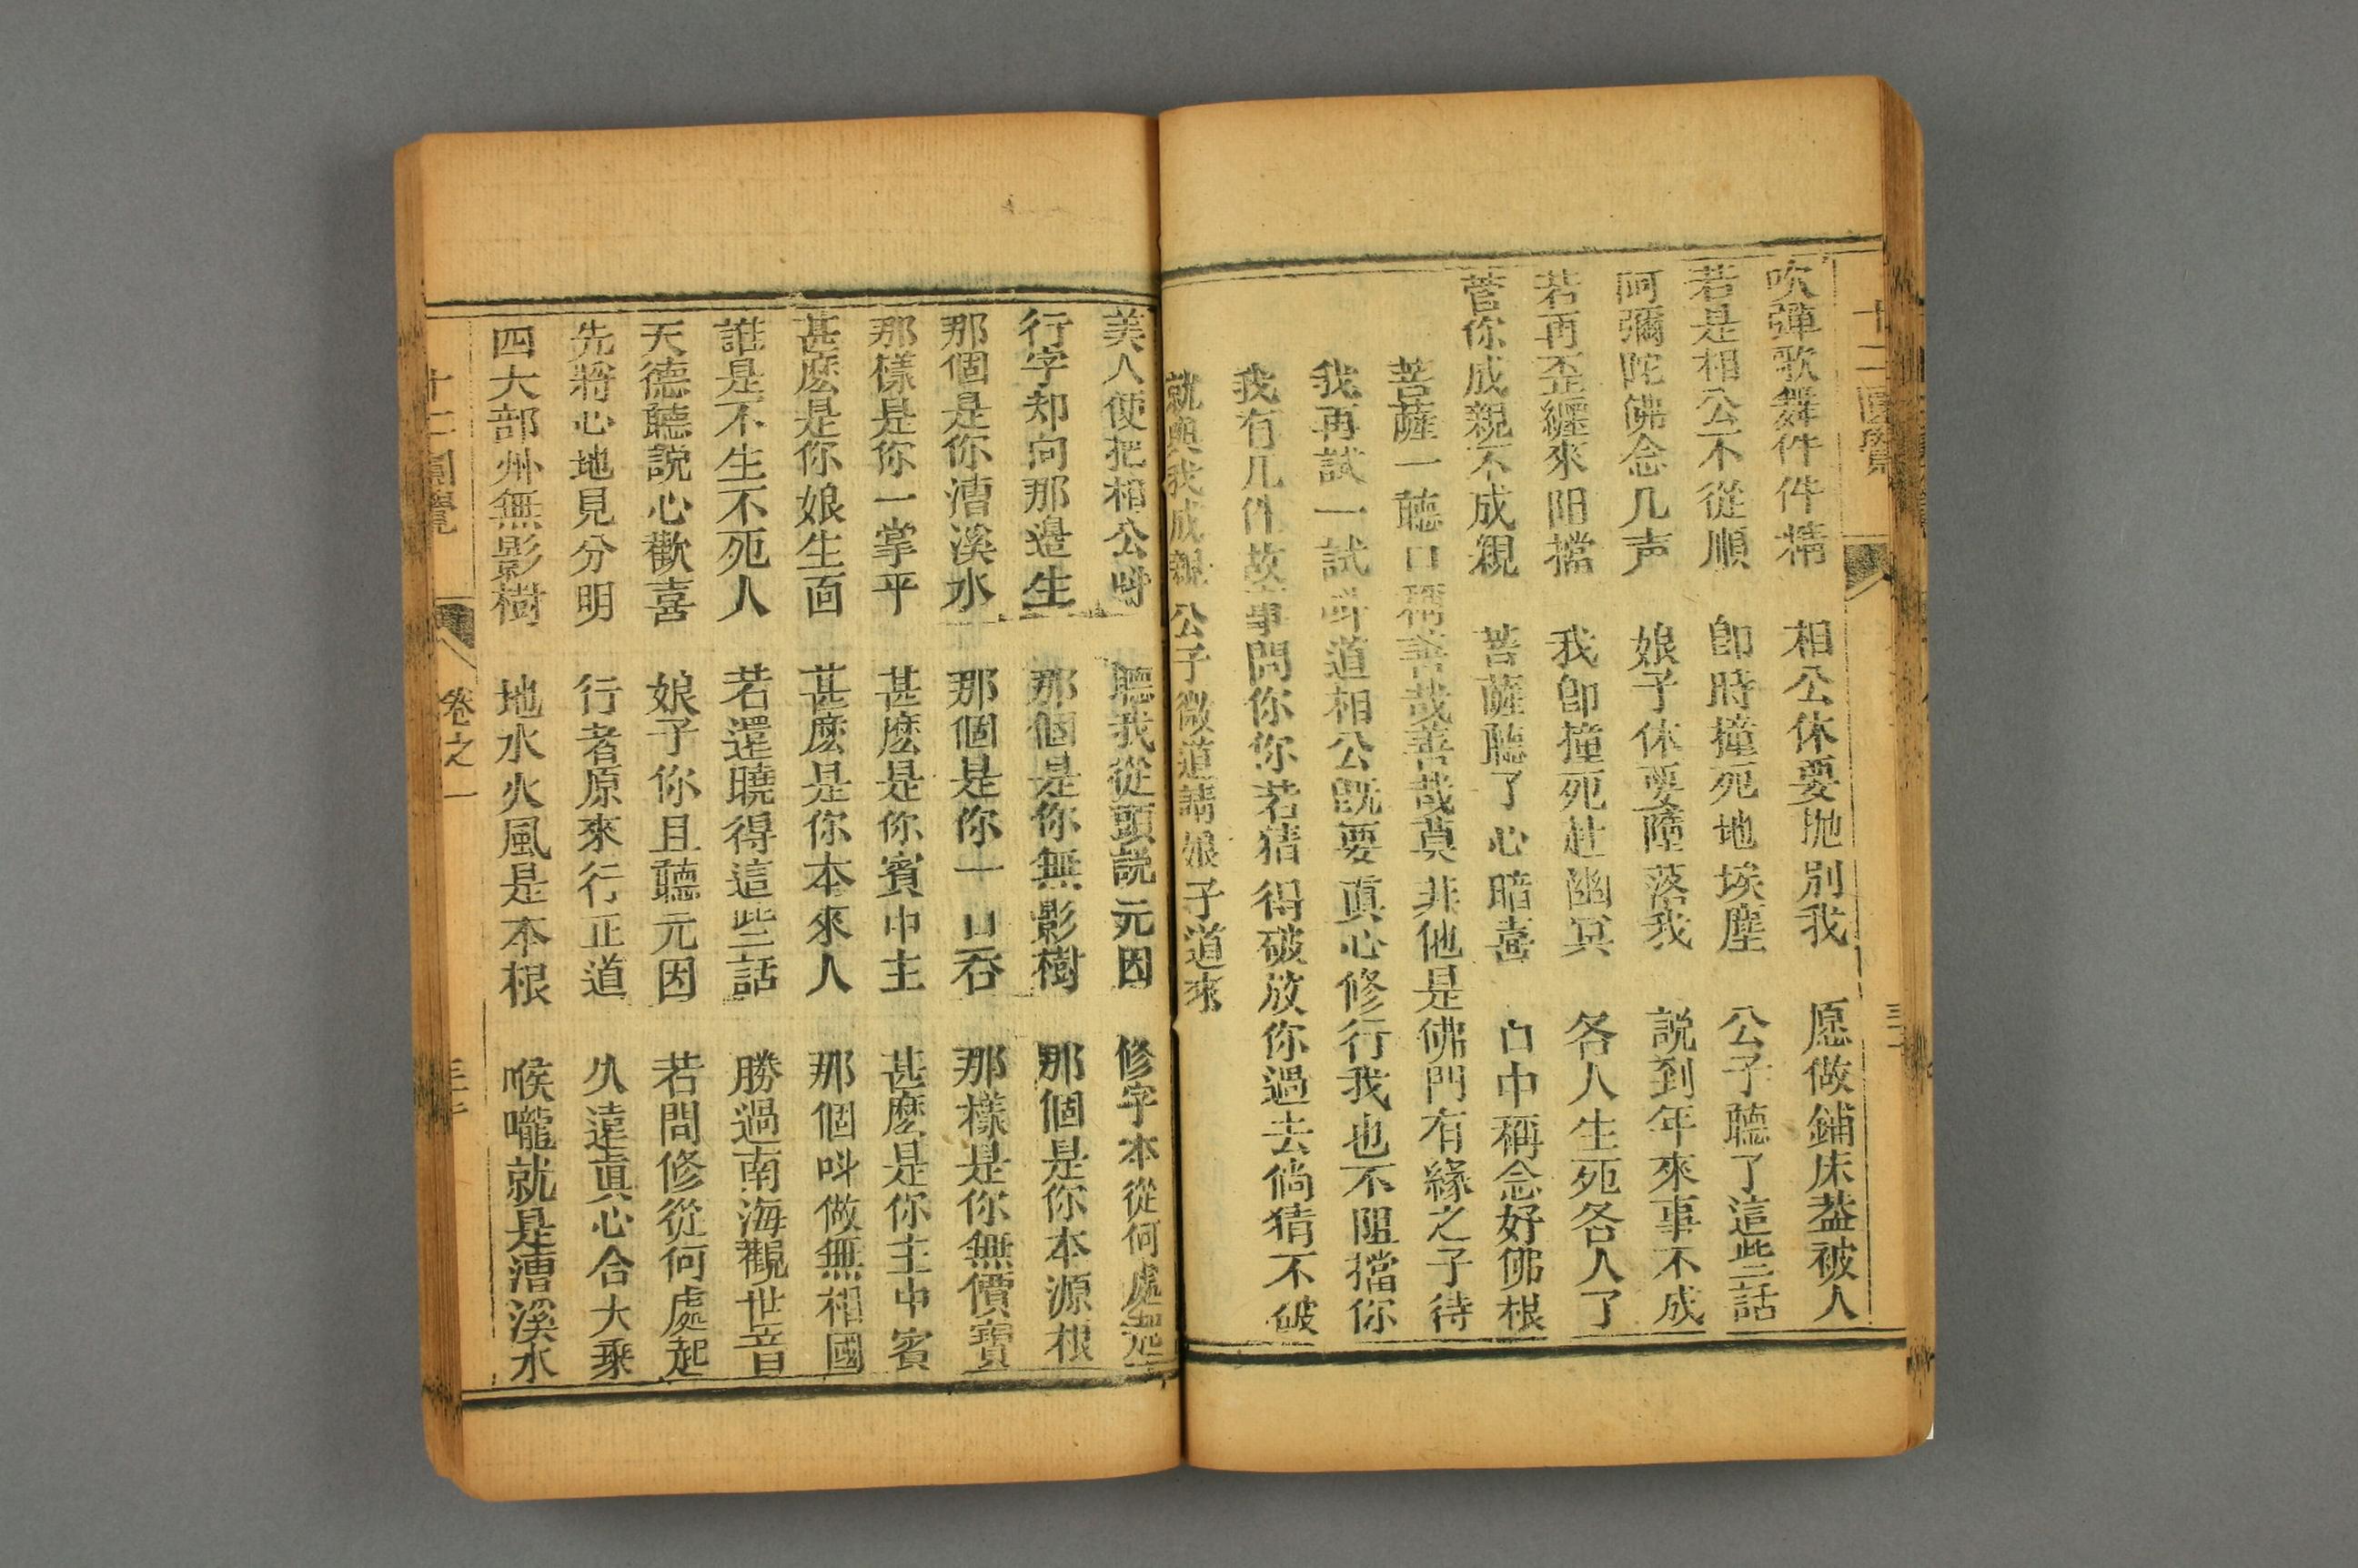 十二圓覺
吹彈歌舞件件精 相公休要抛別我 愿做鋪床葢被人
若是相公不從順 卽時撞死地埃塵 公子聽了這些話
阿彌陀佛念几声 娘子休要墮落我 説到年來事不成
若再歪纏來阻擋 我卽撞死赴幽冥 各人生死各人了
菅你成親不成親 菩薩聽了心暗喜 口中稱念好佛根
菩薩一聽口稱善哉善哉莫非他是佛門有緣之子待
我再試一試呌道相公既要眞心修行我也不阻擋你
我有几件故事問你你若猜得破放你過去倘猜不破
就與我成親公子微道請娘子道來
美人便把相公呌 聽我從頭説元因 修字本從何處起
行字却向那邉生 那個是你無影樹 那個是你本源根
那個是你漕溪水 那個是你一口吞 那樣是你無價寶
那樣是你一掌平 甚麽是你賓中主 甚麽是你主中賓
甚麽是你娘生面 甚麽是你本來人 那個呌做無相國
誰是不生不死人 若還曉得這些話 勝過南海觀世音
天德聽説心歡喜 娘子你且聽元因 若問修從何處起
先將心地見分明 行者原來行正道 久遠眞心合大乘
四大部州無影樹 地水火風是本根 喉嚨就是漕溪水
十二圓覺 卷之一